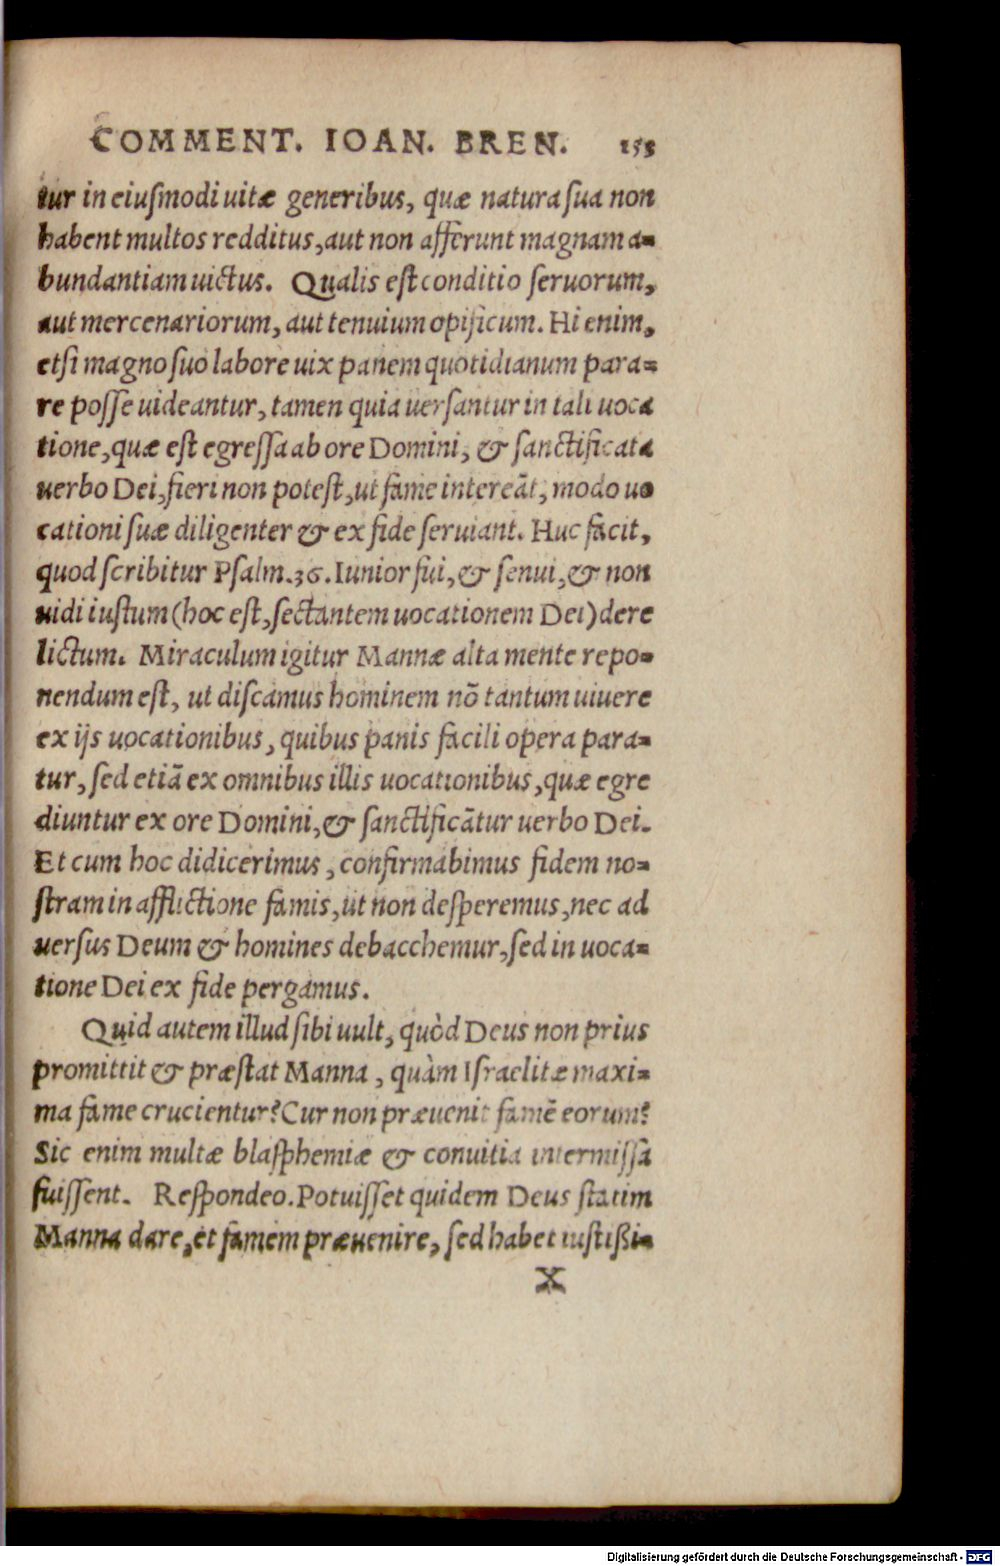 COMMENT. IOAN. BREN. 153
tur in eiuſmodi uitæ generibus, quæ natura ſua non
habent multos redditus, aut non afferunt magnam a-
bundantiam uictus. Qualis eſt conditio ſeruorum,
aut mercenariorum, aut tenuium opificum. Hi enim,
etſi magno ſuo labore uix panem quotidianum para-
re poſſe uideantur, tamen quia uerſantur in tali uoca
tione, quæ eſt egreſſa ab ore Domini, & ſanctificata
uerbo Dei, fieri non poteſt, ut fame intereāt, modo uo
cationi ſuæ diligenter & ex fide ſeruiant. Huc facit,
quod ſcribitur Pſalm. 36. Iunior fui, & ſenui, & non
uidi iuſtum (hoc eſt, ſectantem uocationem Dei) dere
lictum. Miraculum igitur Mannæ alta mente repo-
nendum eſt, ut diſcamus hominem nō tantum uiuere
ex ijs uocationibus, quibus panis facili opera para-
tur, ſed etiā ex omnibus illis uocationibus, quæ egre
diuntur ex ore Domini, & ſanctificātur uerbo Dei.
Et cum hoc didicerimus, confirmabimus fidem no-
ſtram in afflictione famis, ut non deſperemus, nec ad
uerſus Deum & homines debacchemur, ſed in uoca-
tione Dei ex fide pergamus.
Quid autem illud ſibi uult, quòd Deus non prius
promittit & præſtat Manna, quàm Iſraelitæ maxi-
ma fame crucientur? Cur non præuenit famē eorum?
Sic enim multæ blaſphemiæ & conuitia intermiſſa
fuiſſent. Reſpondeo. Potuiſſet quidem Deus ſtatim
Manna dare, et famem præuenire, ſed habet iuſtißi-
X
Digitalisierung gefördert durch die Deutsche Forschungsgemeinschaft - DFG